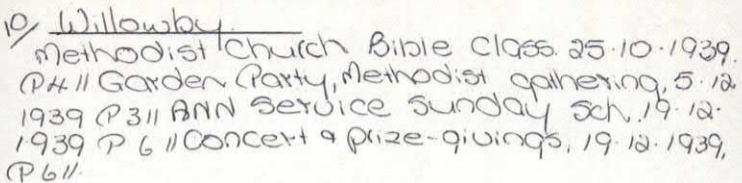 10/ Willowby.
Methodist Church Bible Class. 25.10.1939.
P4 11 Garden Party, Methodist gathering, 5.12
1939 P3 11 ANN Service Sunday Sch. 19.12.
1939 P 6 11 Concert & prize-givings. 19.12.1939,
P6 11.